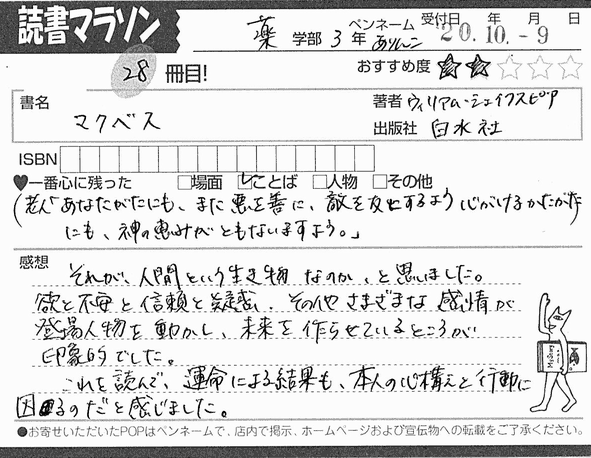 読書マラソン
薬 学部 3 年 ペンネーム ありんこ 受付日 年 月 日
20.10.-9
28 冊目!
おすすめ度 ★★☆☆☆
書名 マクベス
著者 ウィリアム・シェイクスピア
出版社 白水社
ISBN
♥一番心に残った □場面 ☑ことば □人物 □その他
(老人「あなたがたにも、また悪を善に、敵を友とするよう心がけるかたがた
にも、神の恵みがともないますよう。」
感想
それが、人間という生き物なのか、と思いました。
欲と不安と信頼と疑惑、その他さまざまな感情が
登場人物を動かし、未来を作らせているところが
印象的でした。
これを読んで、運命による結果も、本人の心構えと行動に
因るのだと感じました。
●お寄せいただいたPOPはペンネームで、店内で掲示、ホームページおよび宣伝物への転載をご了承ください。